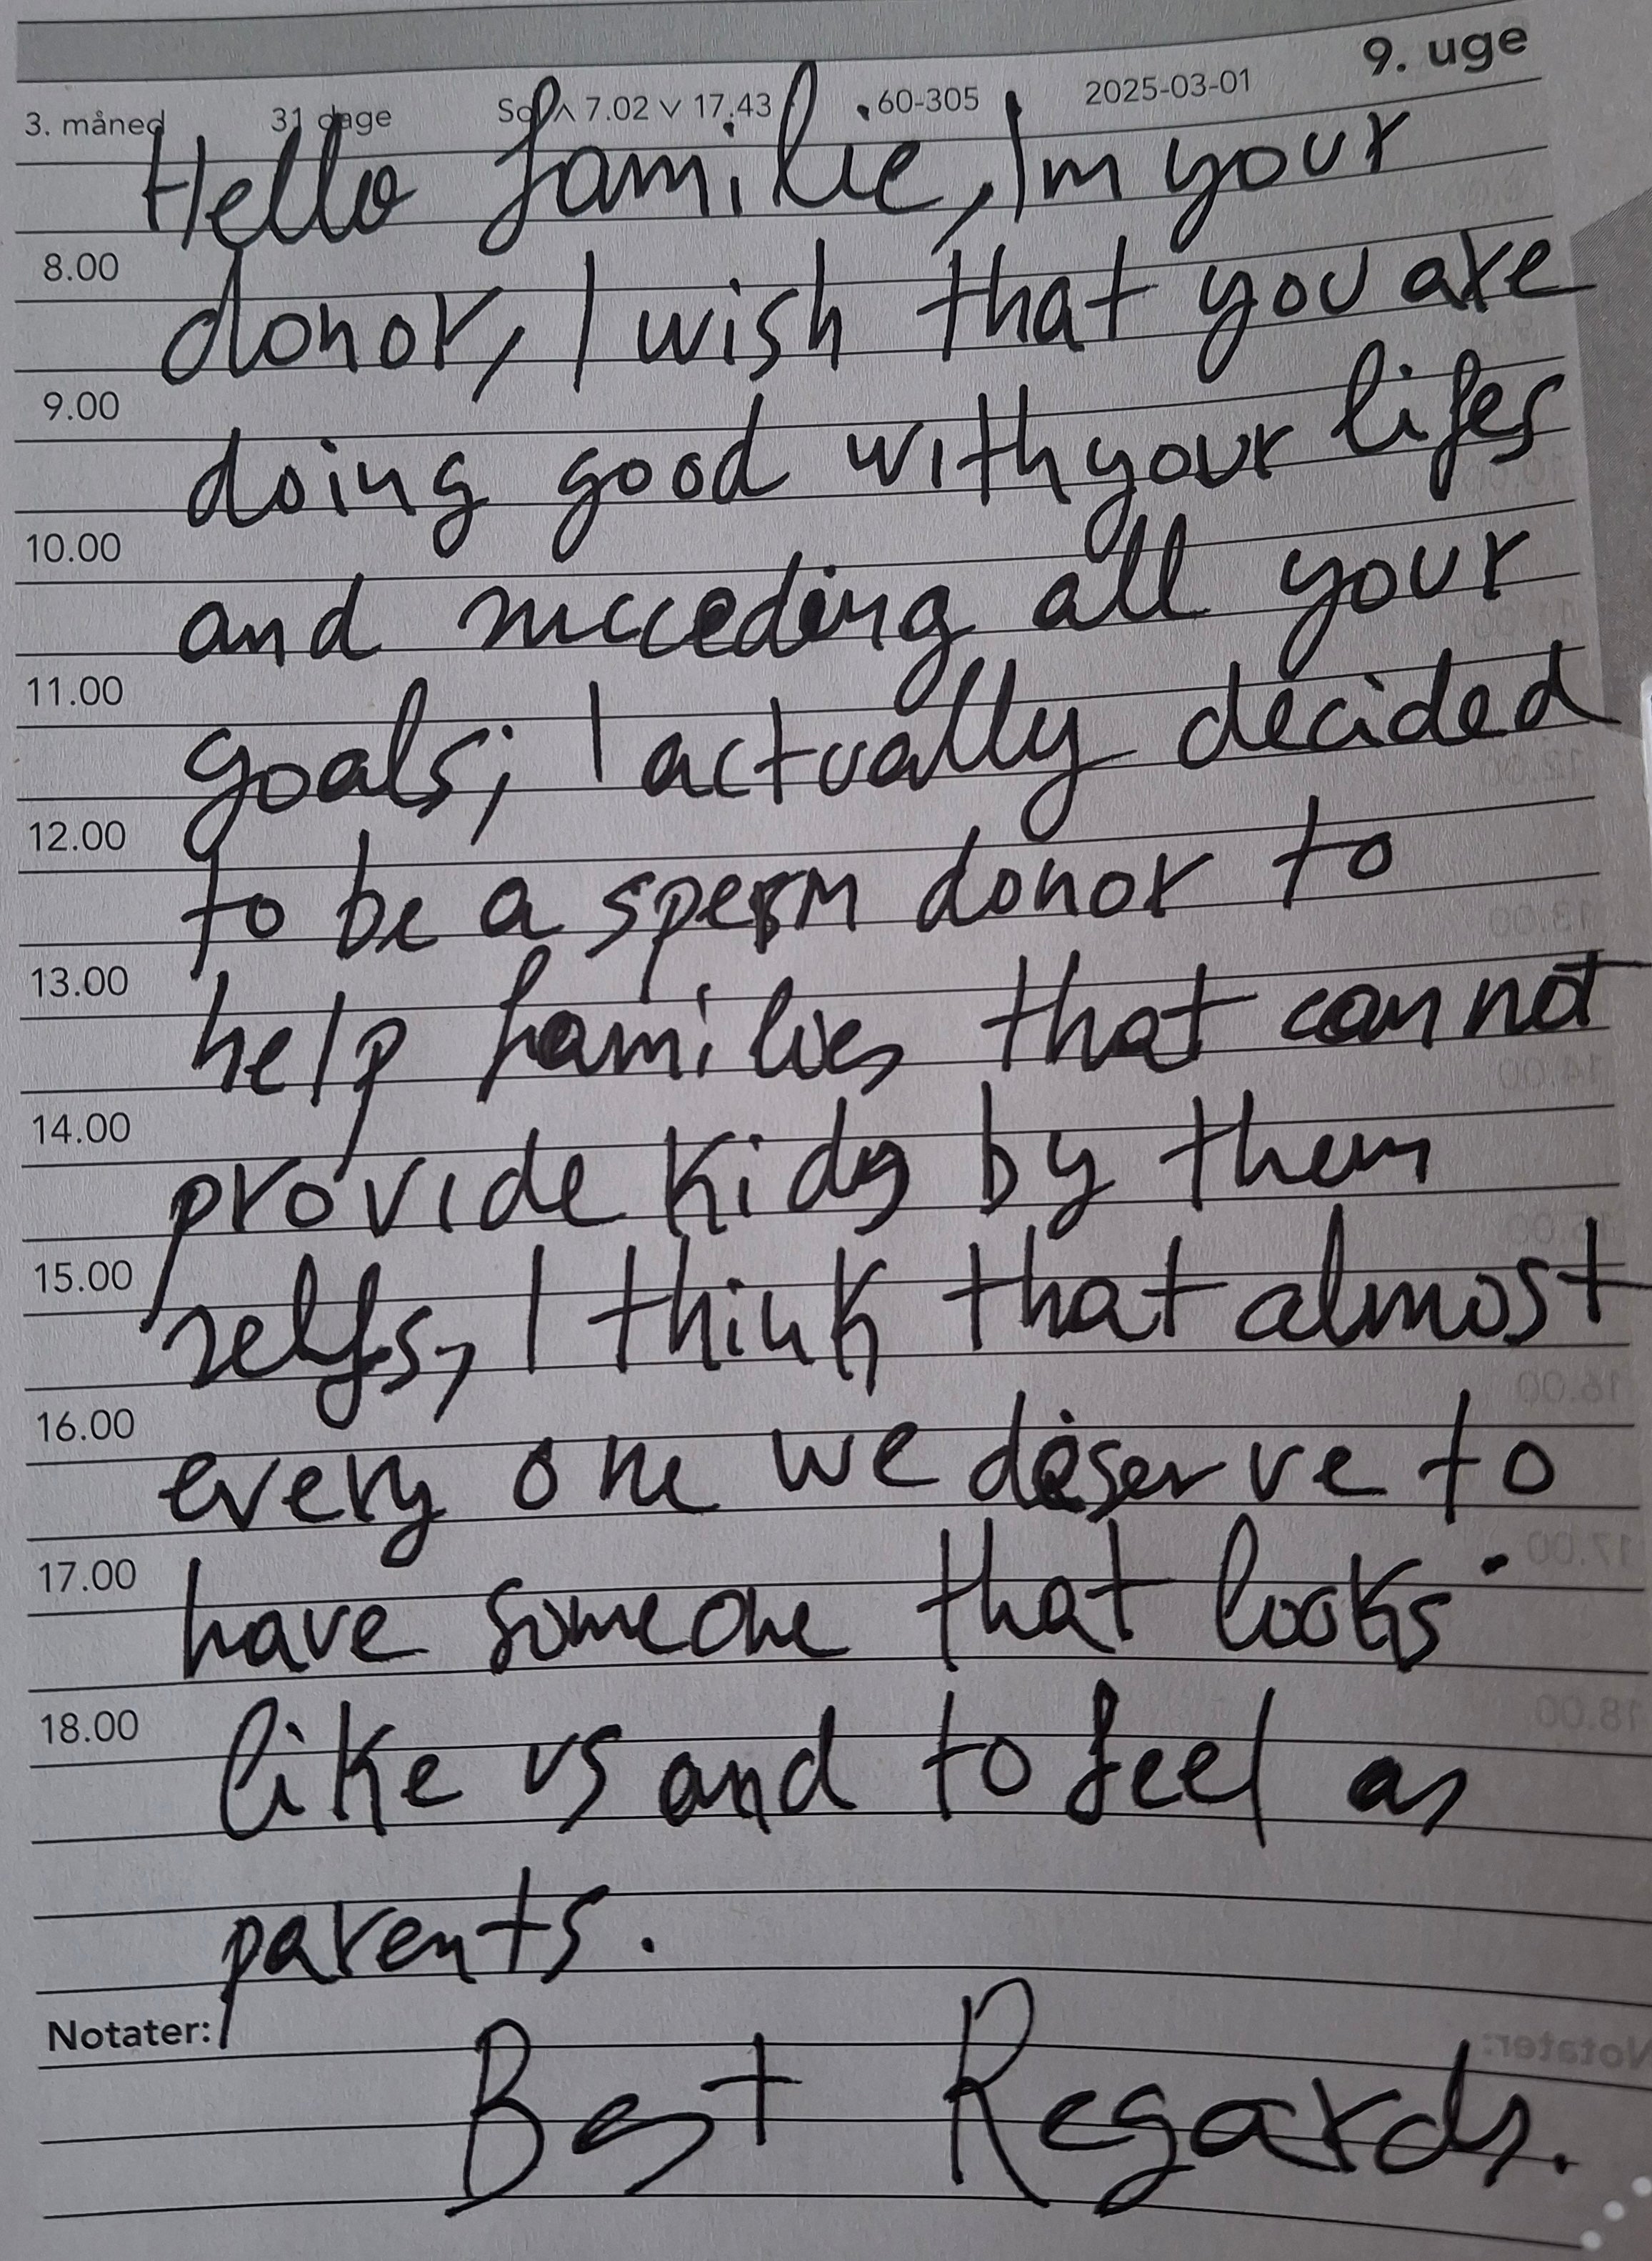 9. uge
3. måned 31 dage Sol ∧ 7.02 ∨ 17.43 60-305 2025-03-01
Hello familie, Im your
8.00
donor, I wish that you are
9.00
doing good with your lifes
10.00
and succeding all your
11.00
goals; I actually decided
12.00
to be a sperm donor to
13.00
help families that can not
14.00
provide kids by them
15.00
selfs, I think that almost
16.00
every one we deserve to
17.00
have someone that looks
18.00
like us and to feel as
parents.
Notater:
Best Regards.